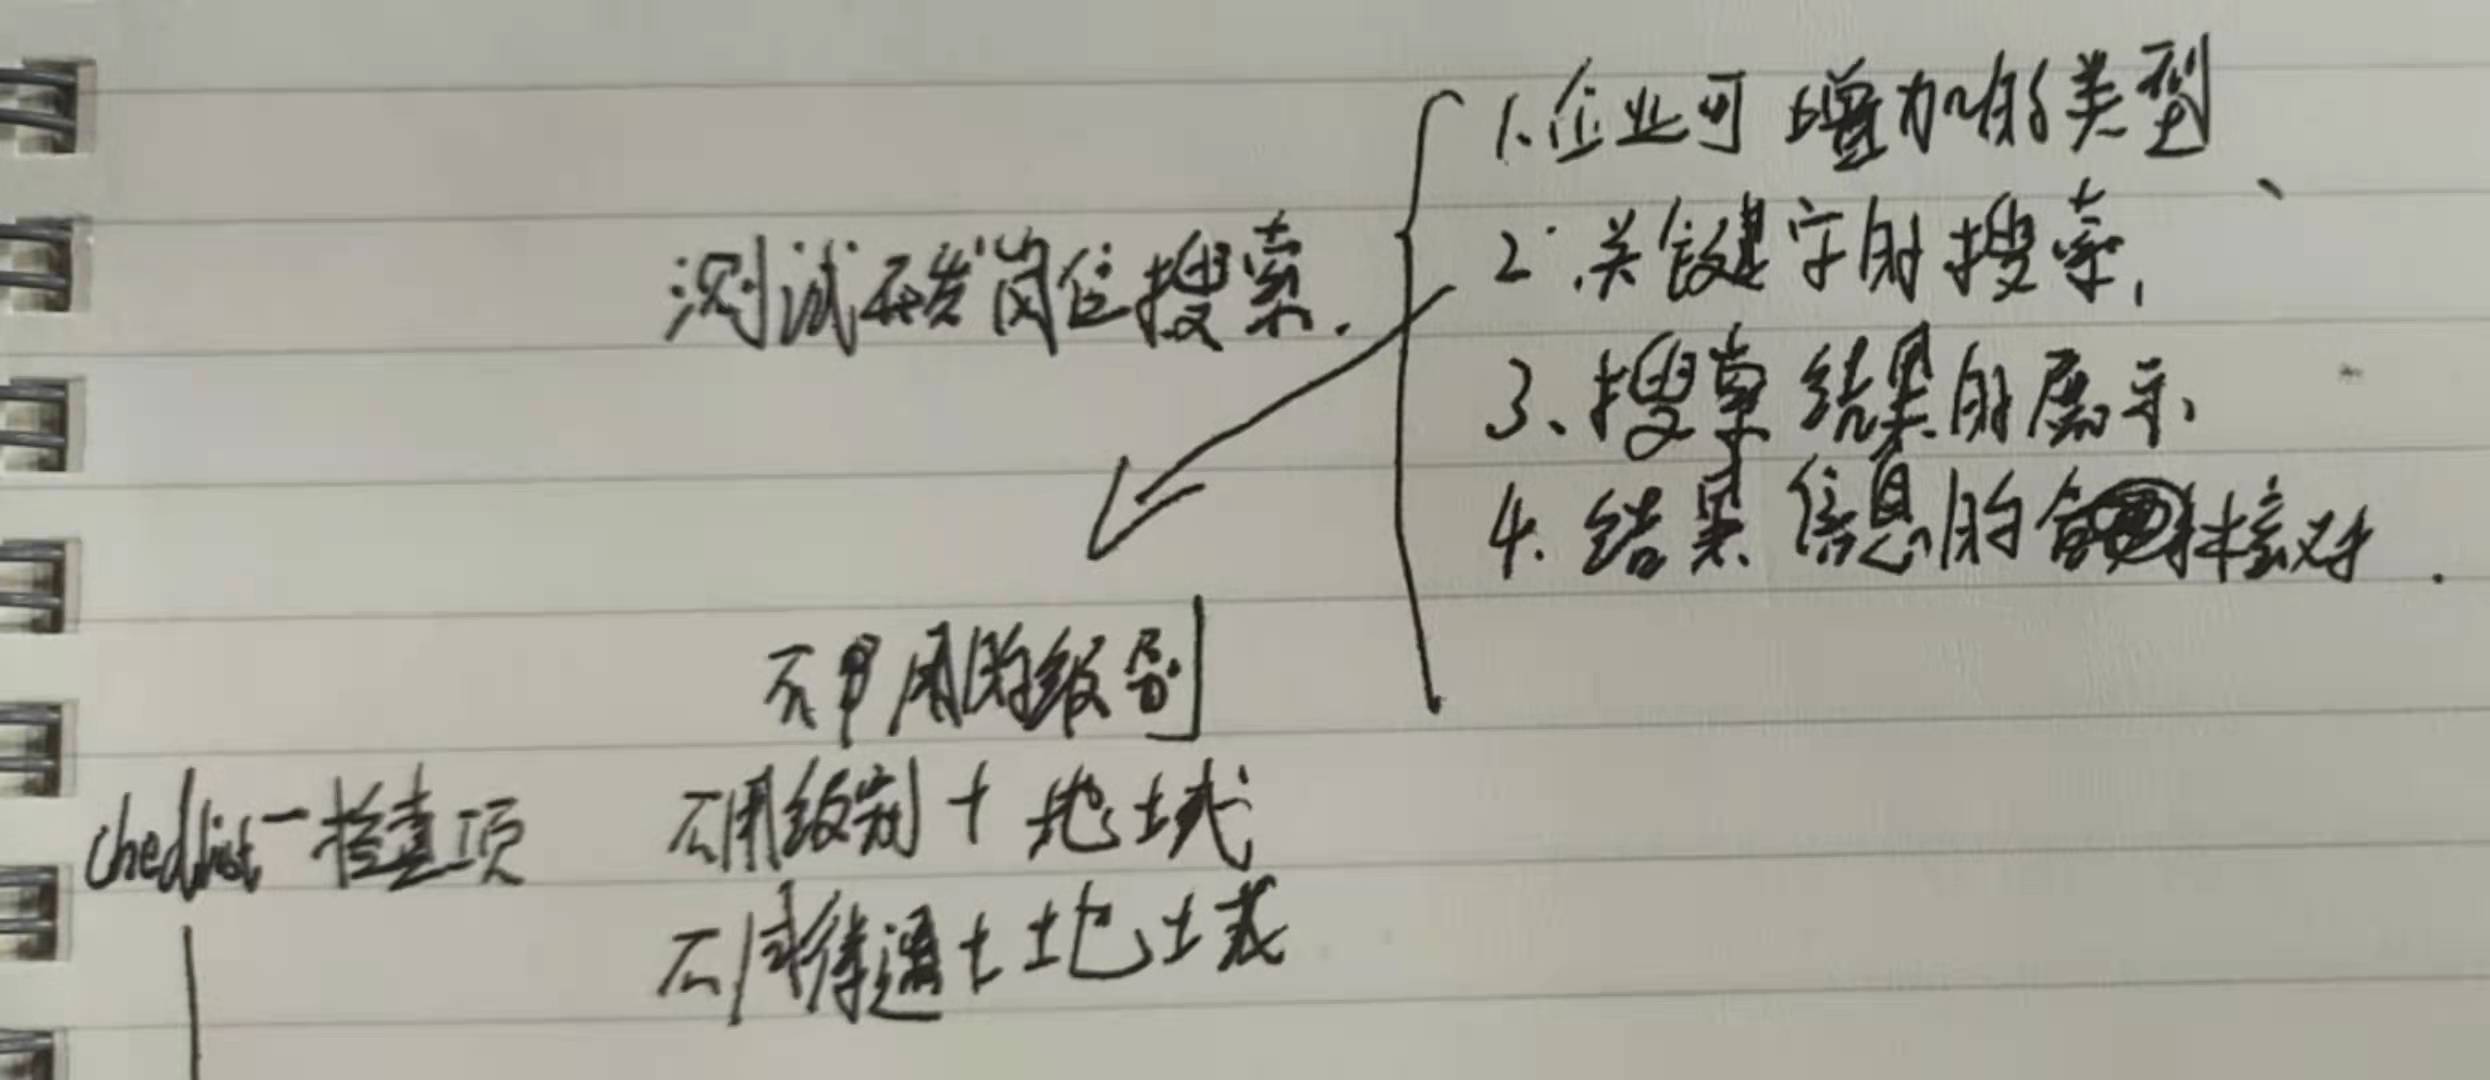 1、企业可增加的类型、
2、关键字的搜索，
测试研发岗位搜索.
3、搜索结果的展示、
4、结果信息的核对.
不同的级别
不同级别+地域
checklist-检查项
不同待遇+地域